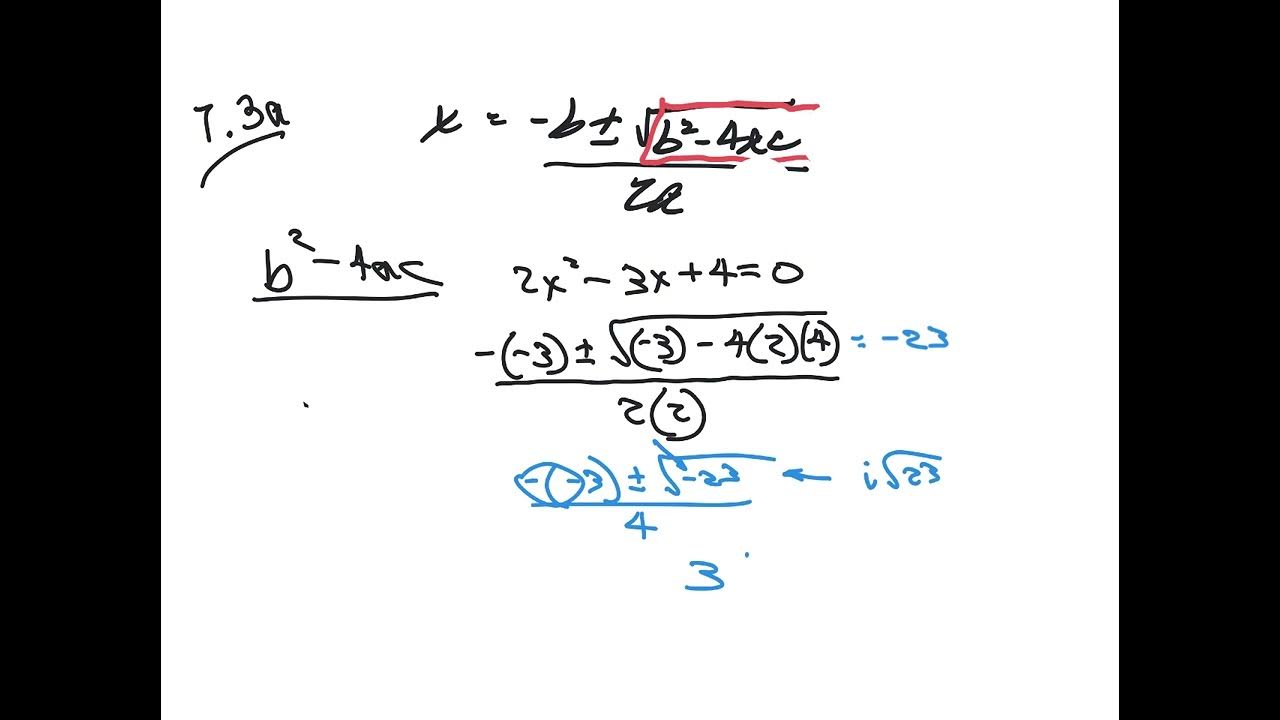 7.3a
x = -b ± √b² - 4ac
2a
b² - 4ac
2x² - 3x + 4 = 0
-(-3) ± √(-3) - 4(2)(4) = -23
2(2)
-(-3) ± √-23 ← i√23
4
3